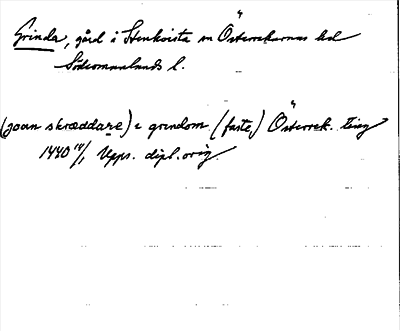 Grinda, gård i Stenkvista sn Österrekarnes hd
Södermanlands l.
(joan skræddare) i grindom (faste,) Österrek. ting
1440 18/1 Upps. dipl. orig.